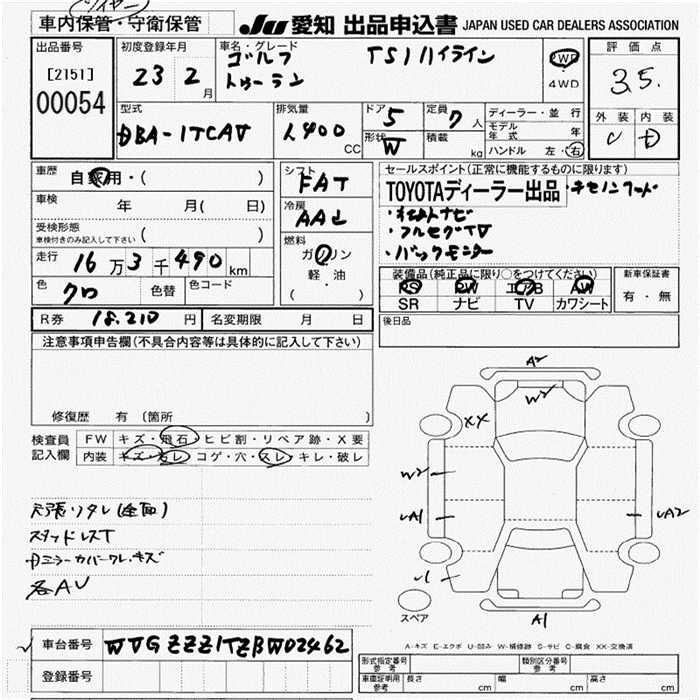 (ワイヤー)
車内保管・守衛保管
JU 愛知 出品申込書 JAPAN USED CAR DEALERS ASSOCIATION
出品番号 [2151] 00054
初度登録年月 23 2月
車名・グレード ゴルフ TSIハイライン
トゥーラン
2WD
4WD
評価点 3.5.
型式 DBA-1TCAV
排気量 1400 CC
ドア 5
形状 W
定員 7人
積載 kg
ディーラー・並行
モデル年式 年
ハンドル 左・右
外装 内装
C D
車歴 自家用・( )
車検 年 月( 日)
受検形態
車検付きのみ記入して下さい ( )
走行 16万3千490km
色 クロ 色替 色コード
シフト FAT
冷房 AAC
燃料 ガソリン
軽・油
( ・ )
セールスポイント(正常に機能するものに限ります)
TOYOTAディーラー出品
・フルセグTV
・バックモニター
装備品(純正品に限り○をつけてください)
PS PW エアB AW
SR ナビ TV カワシート
新車保証書
有・無
R券 18.210円 名変期限 月 日
後日品
注意事項申告欄(不具合内容等は具体的に記入して下さい)
修復歴 有(箇所 )
検査員記入欄
FW キズ・飛石・ヒビ割・リペア跡・X要
内装 キズ・汚レ・コゲ・穴・スレ・キレ・破レ
天張リタレ(全面)
スタッドレスT
各AU
A2
W2
XX
W2
UA1
UA2
A1
スペア
A-キズ E-エクボ U-凹み W-補修跡 S-サビ C-腐食 XX-交換済
車台番号 WVGZZZ1TZBW02462
登録番号
形式指定番号 参考
類別区分番号 参考
車庫証明用 参考 長さ cm 幅 cm 高さ cm